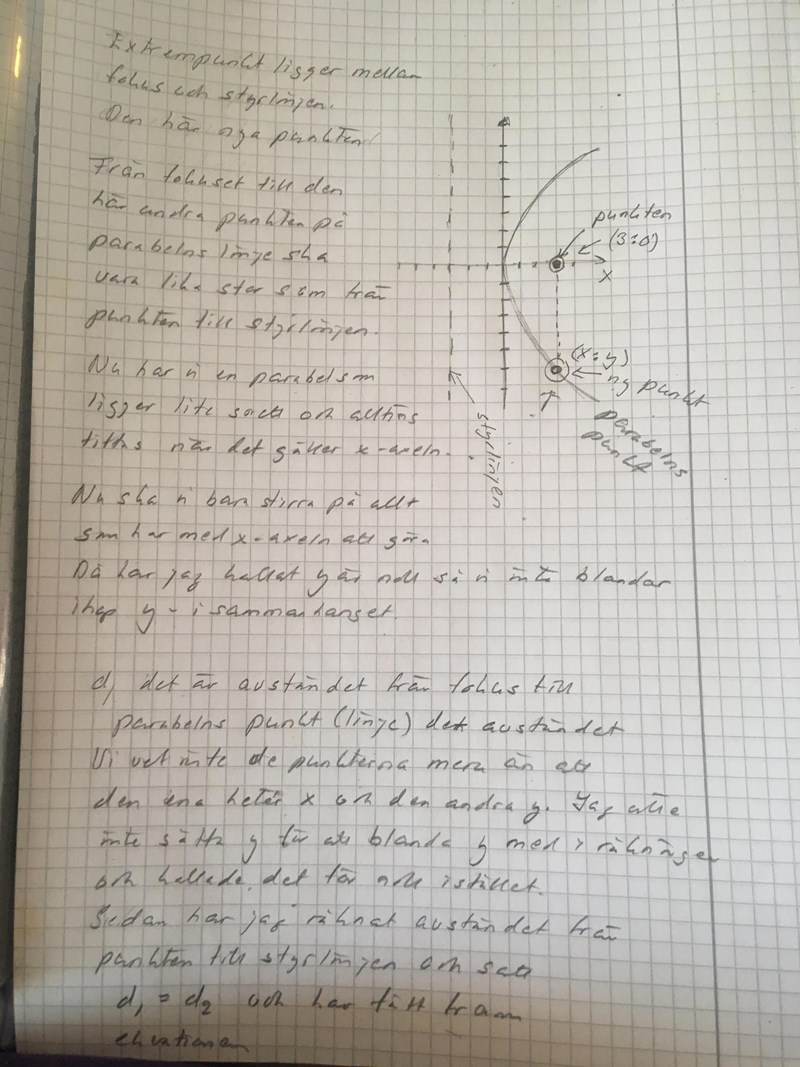 Extrempunkt ligger mellan
fokus och styrlinjen.
Den här nya punkten
Från fokuset till den
här andra punkten på
parabelns linje ska
vara lika stor som från
punkten till styrlinjen.
Nu har vi en parabel som
ligger lite och alltings
tittas när det gäller x-axeln.
Nu ska vi bara stirra på allt
som har med x-axeln att göra
Då har jag kallat y är noll så vi inte blandar
ihop y - i sammanhanget.
d, det är avståndet från fokus till
parabelns punkt (linje) det avståndet
Vi vet inte de punkterna mera än att
den ena heter x och den andra y. Jag
inte sätta y för att blanda y med i
och kallade det för noll istället.
Sedan har jag räknat avståndet från
punkten till styrlinjen och satt
d₁ = d₂ och har fått fram
ekvationen
punkten
(3:0)
x
(x:y)
ny punkt
parabelns
punkt
styrlinjen